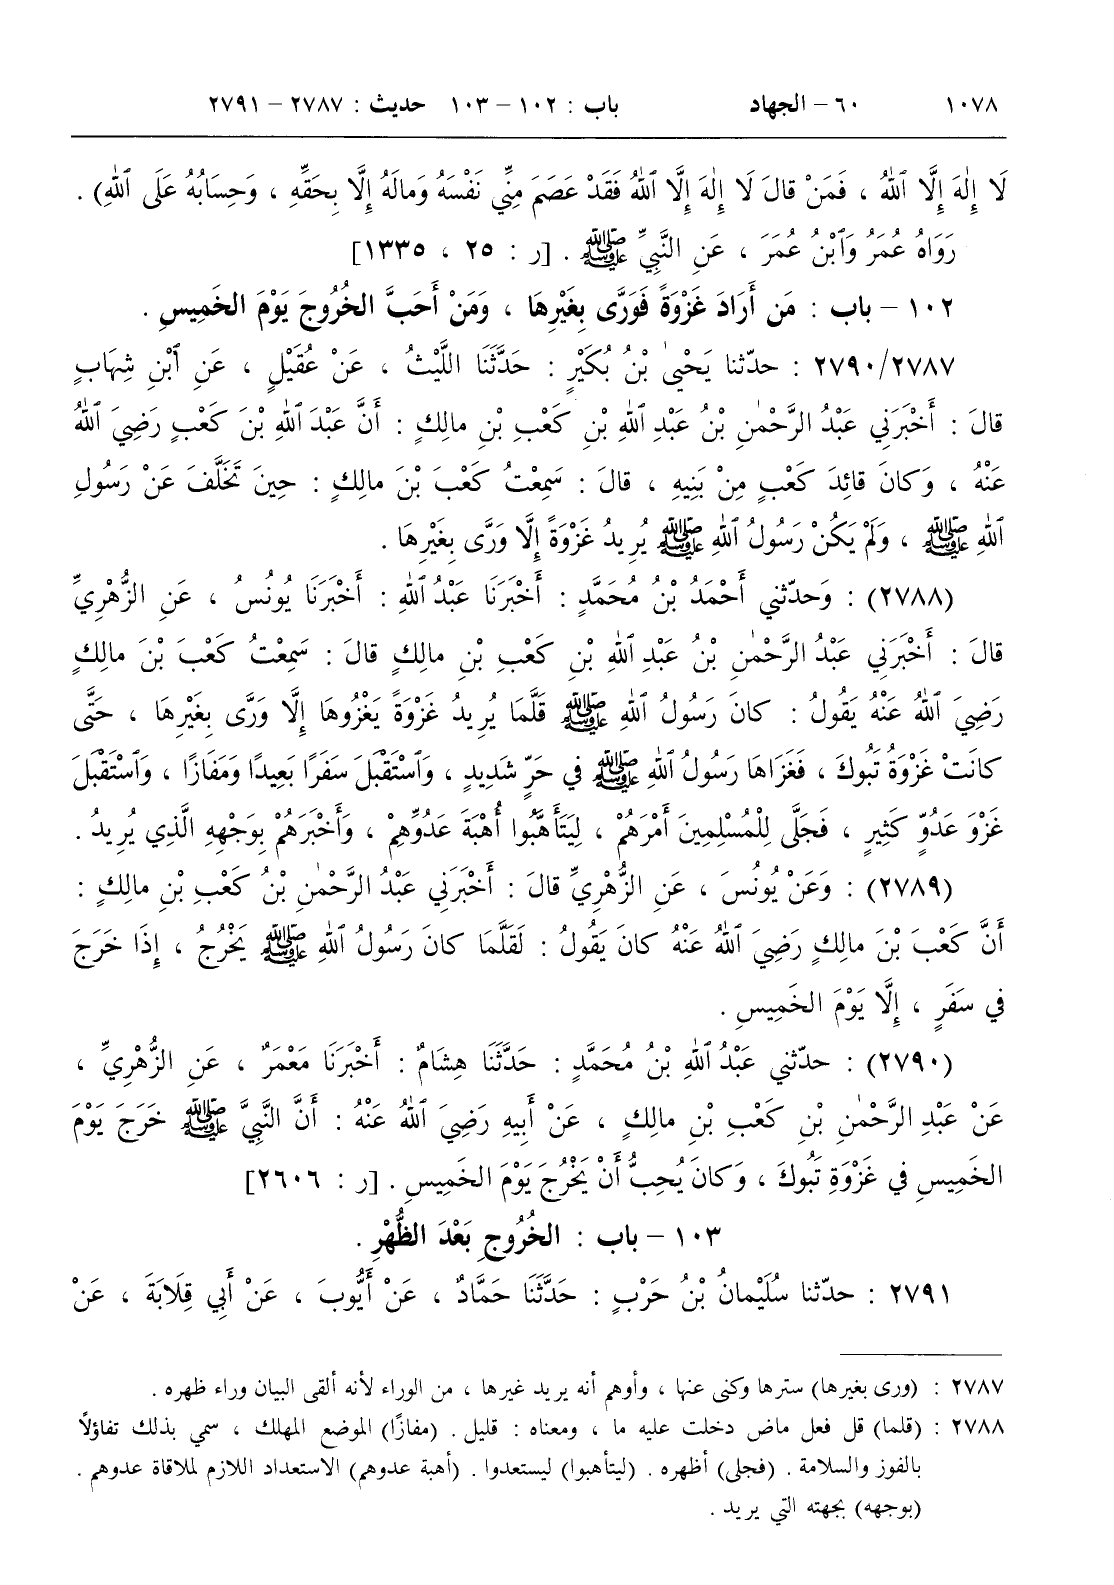 ١٠٧٨ ٦٠ – الجهاد باب : ١٠٢ – ١٠٣ حديث : ٢٧٨٧ – ٢٧٩١
لَا إِلٰهَ إِلَّا ٱللهُ ، فَمَنْ قالَ لَا إِلٰهَ إِلَّا ٱللهُ فَقَدْ عَصَمَ مِنِّي نَفْسَهُ وَمالَهُ إِلَّا بِحَقِّهِ ، وَحِسَابُهُ عَلَى ٱللهِ) .
رَوَاهُ عُمَرُ وَٱبْنُ عُمَرَ ، عَنِ النَّبِيِّ ﷺ . [ر : ٢٥ ، ١٣٣٥]
١٠٢ – باب : مَن أَرَادَ غَزْوَةً فَوَرَّى بِغَيْرِهَا ، وَمَنْ أَحَبَّ الخُرُوجَ يَوْمَ الخَمِيسِ .
٢٧٩٠/٢٧٨٧ : حدّثنا يَحْيىٰ بْنُ بُكَيْرٍ : حَدَّثَنَا اللَّيْثُ ، عَنْ عُقَيْلٍ ، عَنِ ٱبْنِ شِهَابٍ
قالَ : أَخْبَرَنِي عَبْدُ الرَّحْمٰنِ بْنُ عَبْدِ ٱللهِ بْنِ كَعْبِ بْنِ مالِكٍ : أَنَّ عَبْدَ ٱللهِ بْنَ كَعْبٍ رَضِيَ ٱللهُ
عَنْهُ ، وَكانَ قائِدَ كَعْبٍ مِنْ بَنِيهِ ، قالَ : سَمِعْتُ كَعْبَ بْنَ مالِكٍ : حِينَ تَخَلَّفَ عَنْ رَسُولِ
ٱللهِ ﷺ ، وَلَمْ يَكُنْ رَسُولُ ٱللهِ ﷺ يُرِيدُ غَزْوَةً إِلَّا وَرَّى بِغَيْرِهَا .
(٢٧٨٨) : وَحدّثني أَحْمَدُ بْنُ مُحَمَّدٍ : أَخْبَرَنَا عَبْدُ ٱللهِ : أَخْبَرَنَا يُونُسُ ، عَنِ الزُّهْرِيِّ
قالَ : أَخْبَرَنِي عَبْدُ الرَّحْمٰنِ بْنُ عَبْدِ ٱللهِ بْنِ كَعْبِ بْنِ مالِكٍ قالَ : سَمِعْتُ كَعْبَ بْنَ مالِكٍ
رَضِيَ ٱللهُ عَنْهُ يَقُولُ : كانَ رَسُولُ ٱللهِ ﷺ قَلَّمَا يُرِيدُ غَزْوَةً يَغْزُوهَا إِلَّا وَرَّى بِغَيْرِهَا ، حَتَّى
كانَتْ غَزْوَةُ تَبُوكَ ، فَغَزَاهَا رَسُولُ ٱللهِ ﷺ في حَرٍّ شَدِيدٍ ، وَٱسْتَقْبَلَ سَفَرًا بَعِيدًا وَمَفَازًا ، وَٱسْتَقْبَلَ
غَزْوَ عَدُوٍّ كَثِيرٍ ، فَجَلَّى لِلْمُسْلِمِينَ أَمْرَهُمْ ، لِيَتَأَهَّبُوا أُهْبَةَ عَدُوِّهِمْ ، وَأَخْبَرَهُمْ بِوَجْهِهِ الَّذِي يُرِيدُ .
(٢٧٨٩) : وَعَنْ يُونُسَ ، عَنِ الزُّهْرِيِّ قالَ : أَخْبَرَنِي عَبْدُ الرَّحْمٰنِ بْنُ كَعْبِ بْنِ مالِكٍ :
أَنَّ كَعْبَ بْنَ مالِكٍ رَضِيَ ٱللهُ عَنْهُ كانَ يَقُولُ : لَقَلَّمَا كانَ رَسُولُ ٱللهِ ﷺ يَخْرُجُ ، إِذَا خَرَجَ
في سَفَرٍ ، إِلَّا يَوْمَ الخَمِيسِ .
(٢٧٩٠) : حدّثني عَبْدُ ٱللهِ بْنُ مُحَمَّدٍ : حَدَّثَنَا هِشَامٌ : أَخْبَرَنَا مَعْمَرٌ ، عَنِ الزُّهْرِيِّ ،
عَنْ عَبْدِ الرَّحْمٰنِ بْنِ كَعْبِ بْنِ مالِكٍ ، عَنْ أَبِيهِ رَضِيَ ٱللهُ عَنْهُ : أَنَّ النَّبِيَّ ﷺ خَرَجَ يَوْمَ
الخَمِيسِ في غَزْوَةِ تَبُوكَ ، وَكانَ يُحِبُّ أَنْ يَخْرُجَ يَوْمَ الخَمِيسِ . [ر : ٢٦٠٦]
١٠٣ – باب : الخُرُوجِ بَعْدَ الظُّهْرِ .
٢٧٩١ : حدّثنا سُلَيْمانُ بْنُ حَرْبٍ : حَدَّثَنَا حَمَّادٌ ، عَنْ أَيُّوبَ ، عَنْ أَبِي قِلَابَةَ ، عَنْ
٢٧٨٧ : (ورى بغيرها) سترها وكنى عنها ، وأوهم أنه يريد غيرها ، من الوراء لأنه ألقى البيان وراء ظهره .
٢٧٨٨ : (قلما) قل فعل ماض دخلت عليه ما ، ومعناه : قليل . (مفازًا) الموضع المهلك ، سمي بذلك تفاؤلاً
بالفوز والسلامة . (فجلى) أظهره . (ليتأهبوا) ليستعدوا . (أهبة عدوهم) الاستعداد اللازم لملاقاة عدوهم .
(بوجهه) بجهته التي يريد .